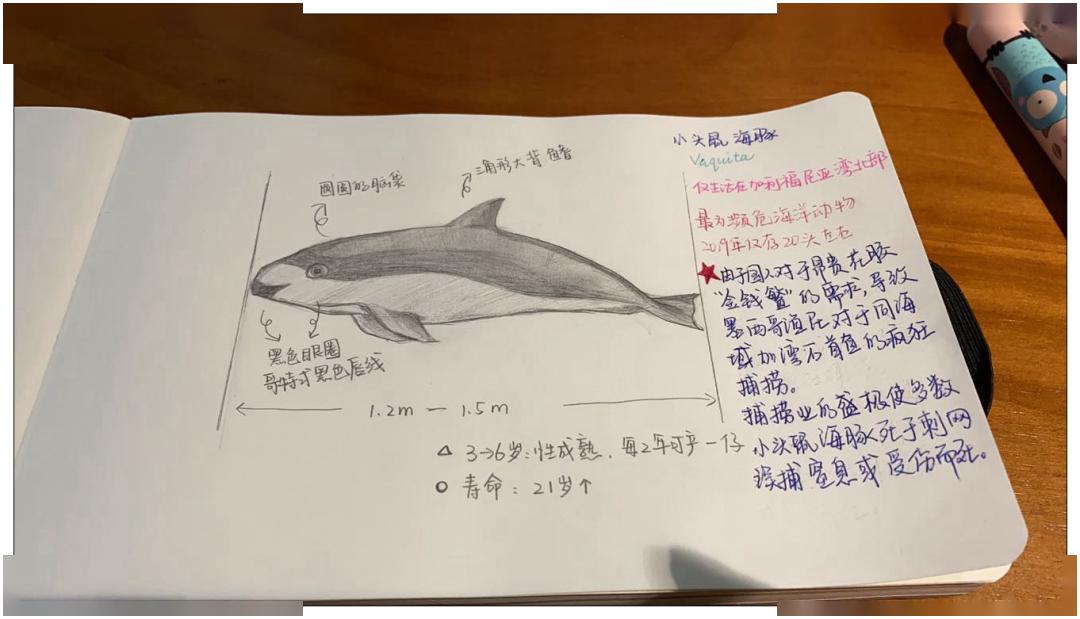 小头鼠海豚
Vaquita
仅生活在加利福尼亚湾北部
最为濒危海洋动物
2019年仅存20头左右
★由于国人对于昂贵花胶
“金钱鳘”的需求，导致
墨西哥渔民对于同海
域加湾石首鱼的疯狂
捕捞。
捕捞业的盛极使多数
小头鼠海豚死于刺网
误捕窒息或受伤而死。
三角形大背鳍
圆圆的脑袋
黑色眼圈
哥特式黑色唇线
1.2m — 1.5m
△ 3→6岁:性成熟，每2年可产一仔
○ 寿命：21岁↑